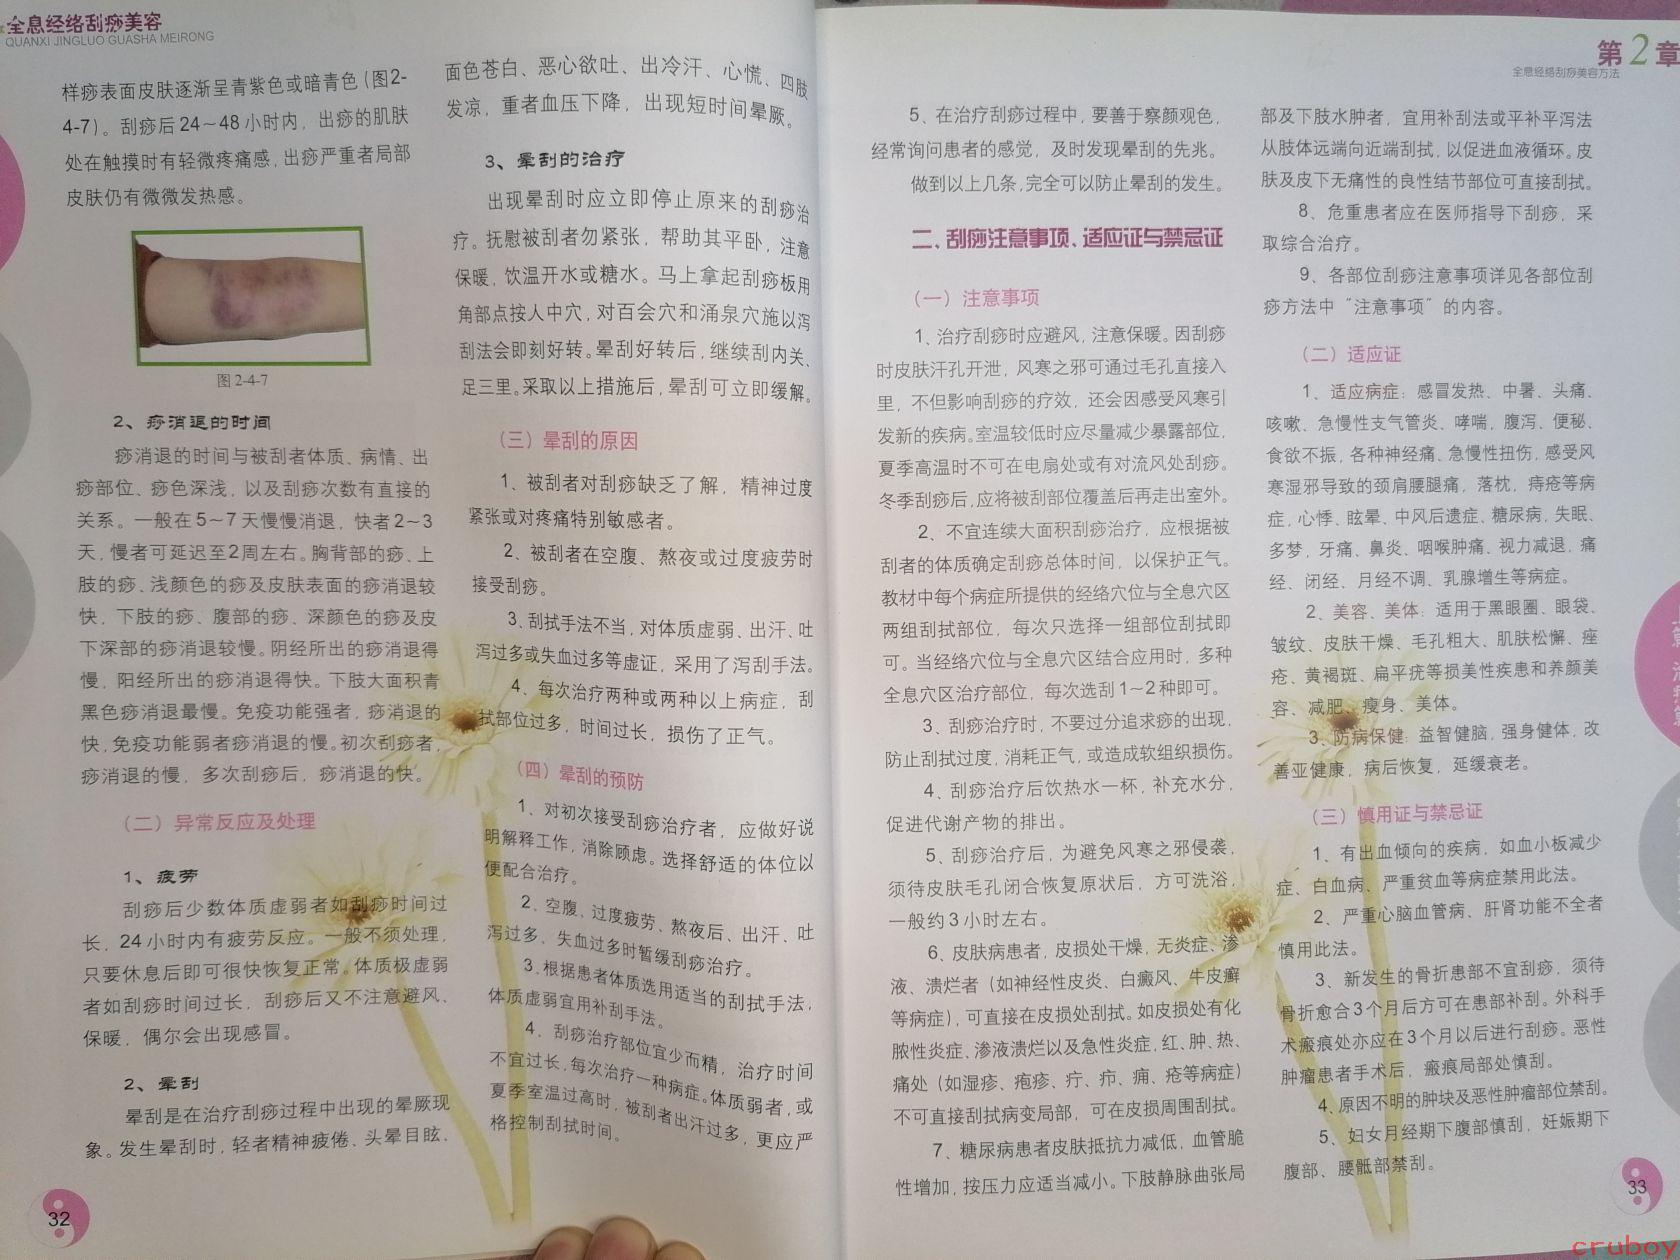 全息经络刮痧美容
QUANXI JINGLUO GUASHA MEIRONG
样痧表面皮肤逐渐呈青紫色或暗青色(图2-
4-7)。刮痧后24～48小时内，出痧的肌肤
处在触摸时有轻微疼痛感，出痧严重者局部
皮肤仍有微微发热感。
图2-4-7
2、痧消退的时间
痧消退的时间与被刮者体质、病情、出
痧部位、痧色深浅，以及刮痧次数有直接的
关系。一般在5～7天慢慢消退，快者2～3
天，慢者可延迟至2周左右。胸背部的痧、上
肢的痧、浅颜色的痧及皮肤表面的痧消退较
快，下肢的痧、腹部的痧、深颜色的痧及皮
下深部的痧消退较慢。阴经所出的痧消退得
慢，阳经所出的痧消退得快。下肢大面积青
黑色痧消退最慢。免疫功能强者，痧消退的
快，免疫功能弱者痧消退的慢。初次刮痧者，
痧消退的慢，多次刮痧后，痧消退的快。
（二）异常反应及处理
1、疲劳
刮痧后少数体质虚弱者如刮痧时间过
长，24小时内有疲劳反应。一般不须处理，
只要休息后即可很快恢复正常。体质极虚弱
者如刮痧时间过长，刮痧后又不注意避风、
保暖，偶尔会出现感冒。
2、晕刮
晕刮是在治疗刮痧过程中出现的晕厥现
象。发生晕刮时，轻者精神疲倦、头晕目眩，
32
面色苍白、恶心欲吐、出冷汗、心慌、四肢
发凉，重者血压下降，出现短时间晕厥。
3、晕刮的治疗
出现晕刮时应立即停止原来的刮痧治
疗。抚慰被刮者勿紧张，帮助其平卧，注意
保暖，饮温开水或糖水。马上拿起刮痧板用
角部点按人中穴，对百会穴和涌泉穴施以泻
刮法会即刻好转。晕刮好转后，继续刮内关、
足三里。采取以上措施后，晕刮可立即缓解。
（三）晕刮的原因
1、被刮者对刮痧缺乏了解，精神过度
紧张或对疼痛特别敏感者。
2、被刮者在空腹、熬夜或过度疲劳时
接受刮痧。
3、刮拭手法不当，对体质虚弱、出汗、吐
泻过多或失血过多等虚证，采用了泻刮手法。
4、每次治疗两种或两种以上病症，刮
拭部位过多，时间过长，损伤了正气。
（四）晕刮的预防
1、对初次接受刮痧治疗者，应做好说
明解释工作，消除顾虑。选择舒适的体位以
便配合治疗。
2、空腹、过度疲劳、熬夜后、出汗、吐
泻过多、失血过多时暂缓刮痧治疗。
3、根据患者体质选用适当的刮拭手法，
体质虚弱宜用补刮手法。
4、刮痧治疗部位宜少而精，治疗时间
不宜过长，每次治疗一种病症。体质弱者，或
夏季室温过高时，被刮者出汗过多，更应严
格控制刮拭时间。
第2章
全息经络刮痧美容方法
5、在治疗刮痧过程中，要善于察颜观色，
经常询问患者的感觉，及时发现晕刮的先兆。
做到以上几条，完全可以防止晕刮的发生。
二、刮痧注意事项、适应证与禁忌证
（一）注意事项
1、治疗刮痧时应避风，注意保暖。因刮痧
时皮肤汗孔开泄，风寒之邪可通过毛孔直接入
里，不但影响刮痧的疗效，还会因感受风寒引
发新的疾病。室温较低时应尽量减少暴露部位，
夏季高温时不可在电扇处或有对流风处刮痧。
冬季刮痧后，应将被刮部位覆盖后再走出室外。
2、不宜连续大面积刮痧治疗，应根据被
刮者的体质确定刮痧总体时间，以保护正气。
教材中每个病症所提供的经络穴位与全息穴区
两组刮拭部位，每次只选择一组部位刮拭即
可。当经络穴位与全息穴区结合应用时，多种
全息穴区治疗部位，每次选刮1～2种即可。
3、刮痧治疗时，不要过分追求痧的出现，
防止刮拭过度，消耗正气，或造成软组织损伤。
4、刮痧治疗后饮热水一杯，补充水分，
促进代谢产物的排出。
5、刮痧治疗后，为避免风寒之邪侵袭，
须待皮肤毛孔闭合恢复原状后，方可洗浴，
一般约3小时左右。
6、皮肤病患者，皮损处干燥，无炎症、渗
液、溃烂者（如神经性皮炎、白癜风、牛皮癣
等病症），可直接在皮损处刮拭。如皮损处有化
脓性炎症、渗液溃烂以及急性炎症，红、肿、热、
痛处（如湿疹、疱疹、疔、疖、痈、疮等病症）
不可直接刮拭病变局部，可在皮损周围刮拭。
7、糖尿病患者皮肤抵抗力减低，血管脆
性增加，按压力应适当减小。下肢静脉曲张局
部及下肢水肿者，宜用补刮法或平补平泻法
从肢体远端向近端刮拭，以促进血液循环。皮
肤及皮下无痛性的良性结节部位可直接刮拭。
8、危重患者应在医师指导下刮痧，采
取综合治疗。
9、各部位刮痧注意事项详见各部位刮
痧方法中“注意事项”的内容。
（二）适应证
1、适应病症：感冒发热、中暑、头痛、
咳嗽、急慢性支气管炎、哮喘，腹泻、便秘、
食欲不振，各种神经痛、急慢性扭伤，感受风
寒湿邪导致的颈肩腰腿痛，落枕，痔疮等病
症，心悸、眩晕、中风后遗症、糖尿病，失眠、
多梦，牙痛、鼻炎、咽喉肿痛、视力减退，痛
经、闭经、月经不调、乳腺增生等病症。
2、美容、美体：适用于黑眼圈、眼袋、
皱纹、皮肤干燥、毛孔粗大、肌肤松懈、痤
疮、黄褐斑、扁平疣等损美性疾患和养颜美
容、减肥、瘦身、美体。
3、防病保健：益智健脑，强身健体，改
善亚健康，病后恢复，延缓衰老。
（三）慎用证与禁忌证
1、有出血倾向的疾病，如血小板减少
症、白血病、严重贫血等病症禁用此法。
2、严重心脑血管病、肝肾功能不全者
慎用此法。
3、新发生的骨折患部不宜刮痧，须待
骨折愈合3个月后方可在患部补刮。外科手
术瘢痕处亦应在3个月以后进行刮痧。恶性
肿瘤患者手术后，瘢痕局部处慎刮。
4、原因不明的肿块及恶性肿瘤部位禁刮。
5、妇女月经期下腹部慎刮，妊娠期下
腹部、腰骶部禁刮。
33
cruboy